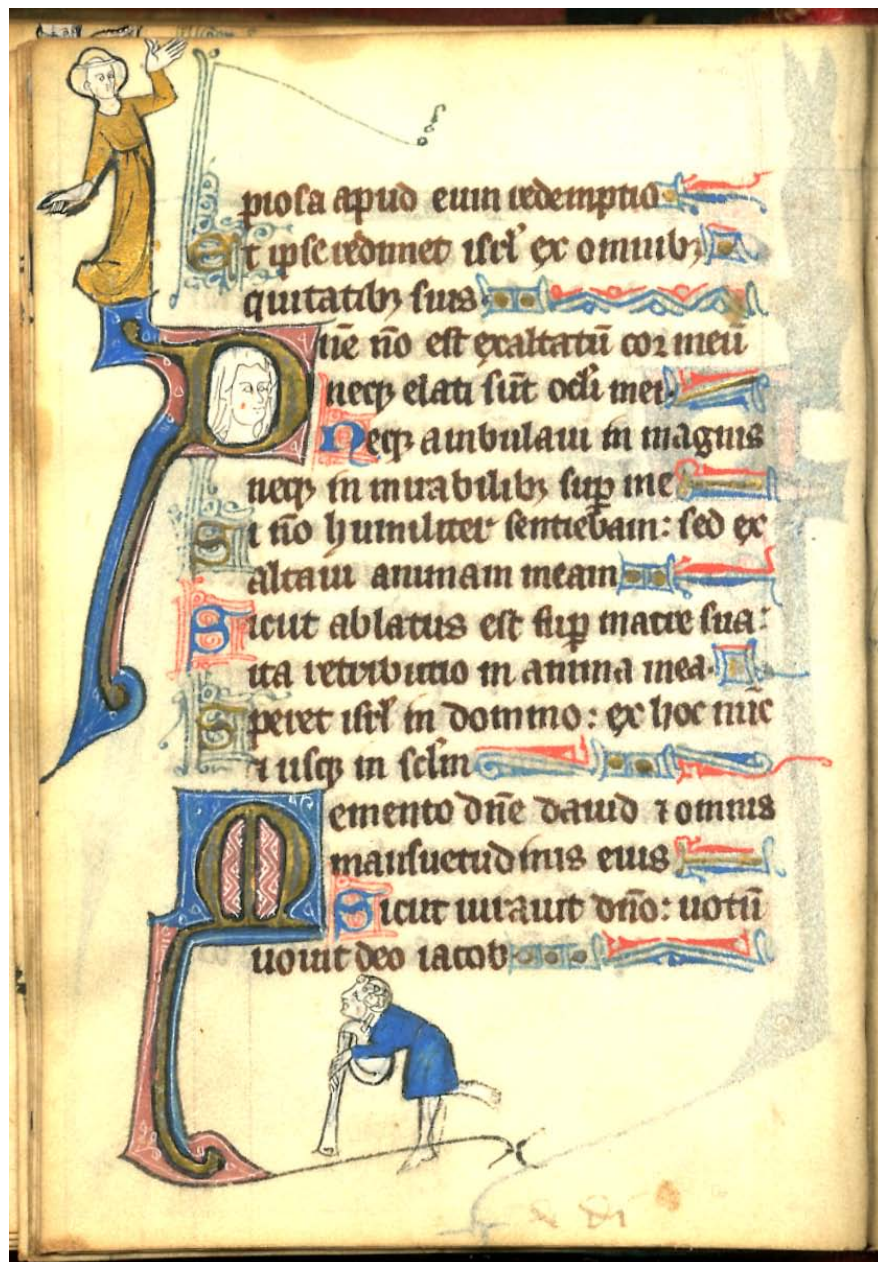 piosa apud eum redemptio
Et ipse redimet isrl̓ ex omnibꝫ
quitatibꝫ suis
Dn̄e nō est exaltatū cor meū
neqꝫ elati sūt ocl̓i mei.
Neqꝫ ambulaui in magnis
neqꝫ in mirabilibꝫ suꝑ me
Si nō humiliter sentiebam: sed ex
altaui animam meam
Sicut ablatus est suꝑ matre sua:
ita retributio in anima mea.
Speret isrl̓ in domino: ex hoc nūc
⁊ usqꝫ in scl̓m
Memento dn̄e dauid ⁊ omnis
mansuetudinis eius
Sicut iurauit dn̄o: uotū
uouit deo iacob